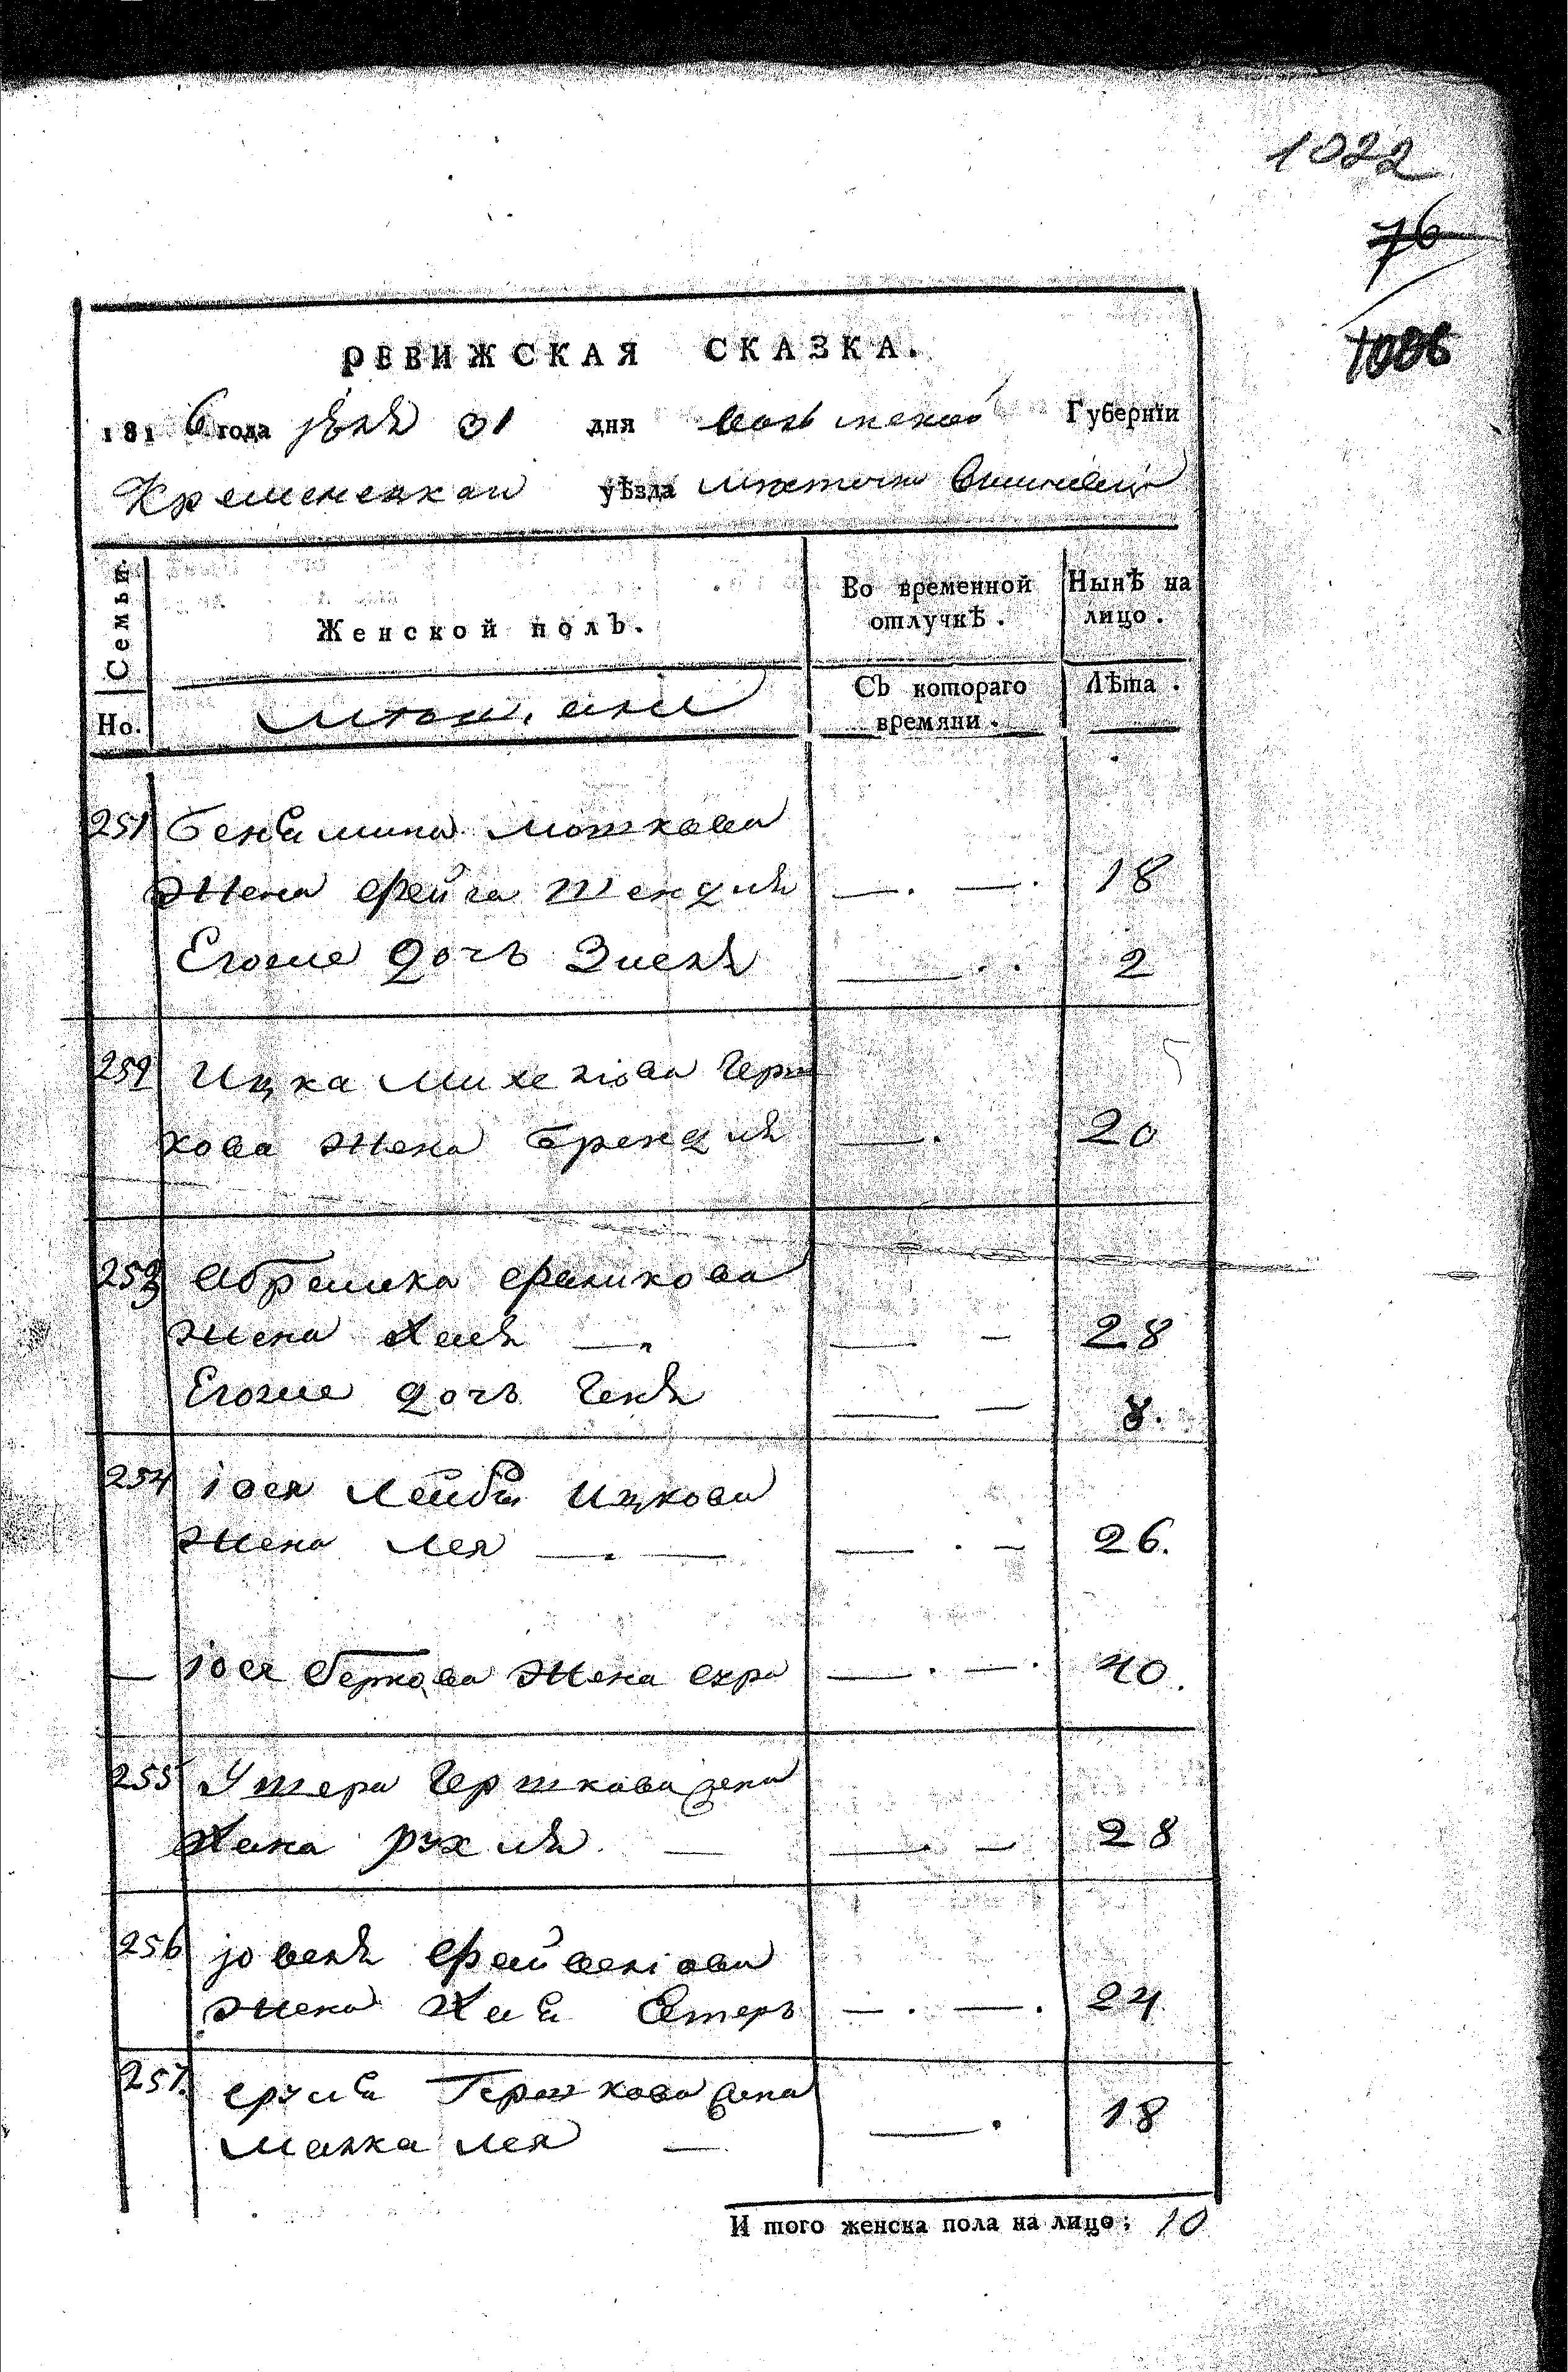 1022
76
1086
РЕВИЖСКАЯ СКАЗКА.
1816 года Іюля 31 дня волынской Губерніи
Кременецкаи уѣзда местечка Вишневца
Семьи
Женской полъ.
Во временной отлучкѣ.
Нынѣ на лицо.
Но.
мещане
Съ котораго времяни.
Лѣта.
251 Бенямина Мошкова
Жена Фейга Шендля — . — . 18
Егоже дочь Зисля — . . 2
252 Ицка Михелiова Герш
кова Жена Брендля — . 20
253 Абрамка Фаликова
Жена Хая — — — 28
Егоже дочь Геня — — 8.
254 іося Лейбы Ицкова
Жена Лея — . — — . — 26.
— іося Беркова Жена сура — . — . 40.
255 Ушера Гершкова жена
Хана Рухля. — — . — 28
256 іовеля Файвелiова
Жена Хая Естеръ — . — . 24
257. сруля Гершкова жена
Малка Лея — — . 18
И того женска пола на лицо; 10